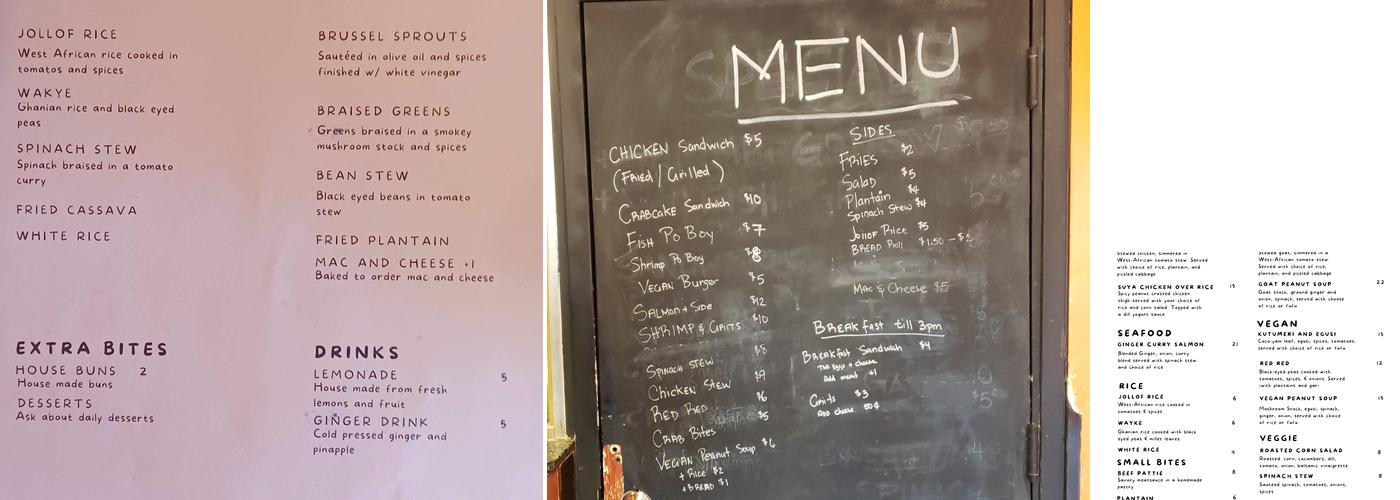 JOLLOF RICE
West African rice cooked in
tomatos and spices
WAKYE
Ghanian rice and black eyed
peas
SPINACH STEW
Spinach braised in a tomato
curry
FRIED CASSAVA
WHITE RICE
EXTRA BITES
HOUSE BUNS 2
House made buns
DESSERTS
Ask about daily desserts
BRUSSEL SPROUTS
Sautéed in olive oil and spices
finished w/ white vinegar
BRAISED GREENS
Greens braised in a smokey
mushroom stock and spices
BEAN STEW
Black eyed beans in tomato
stew
FRIED PLANTAIN
MAC AND CHEESE +1
Baked to order mac and cheese
DRINKS
LEMONADE 5
House made from fresh
lemons and fruit
GINGER DRINK 5
Cold pressed ginger and
pineapple
MENU
CHICKEN Sandwich $5
(Fried / Grilled)
CRABCAKE Sandwich $10
Fish Po Boy $7
Shrimp Po Boy $8
VEGAN Burger $5
SALMON + Side $12
SHRIMP & GRITS $10
SPINACH STEW $8
Chicken Stew $9
RED RED $6
CRAB Bites $5
VEGAN Peanut Soup $6
+ Rice $2
+ BREAD $1
SIDES
FRIES $2
Salad $5
Plantain $4
Spinach Stew $4
Jollof Rice $5
BREAD Roll $1.50 - $2
MAC & Cheese $5
BREAKfast till 3pm
BREAKfast Sandwich $4
Two eggs + cheese
Add meat +1
Grits $3
ADD cheese 50¢
Stewed chicken, simmered in
West-African tomato stew. Served
with choice of rice, plantain, and
pickled cabbage
SUYA CHICKEN OVER RICE 15
Spicy peanut crusted chicken
thigh served with your choice of
rice and corn salad. Topped with
a dill yogurt sauce
SEAFOOD
GINGER CURRY SALMON 21
Blended Ginger, onion, curry
blend served with spinach stew
and choice of rice
RICE
JOLLOF RICE 6
West-African rice cooked in
tomatoes & spices
WAYKE 6
Ghanian rice cooked with black
eyed peas & millet leaves
WHITE RICE 4
SMALL BITES
BEEF PATTIE 8
Savory meatsauce in a homemade
pastry
PLANTAIN 6
Stewed goat, simmered in a
West-African tomato stew.
Served with choice of rice,
plantain, and pickled cabbage
GOAT PEANUT SOUP 22
Goat stock, ground ginger and
onion, spinach, served with choose
of rice or fufu
VEGAN
KUTUMERI AND EGUSI 15
Coco-yam leaf, egusi, spices, tomatoes,
served with choice of rice or fufu
RED RED 12
Black-eyed peas cooked with
tomatoes, spices, & onions. Served
with plantains and gari
VEGAN PEANUT SOUP 15
Mushroom Stock, egusi, spinach,
ginger, onion, served with choice
of rice or fufu
VEGGIE
ROASTED CORN SALAD 8
Roasted corn, cucumbers, dill,
tomato, onion, balsamic vinaigrette
SPINACH STEW 8
Sauteed spinach, tomatoes, onions,
spices